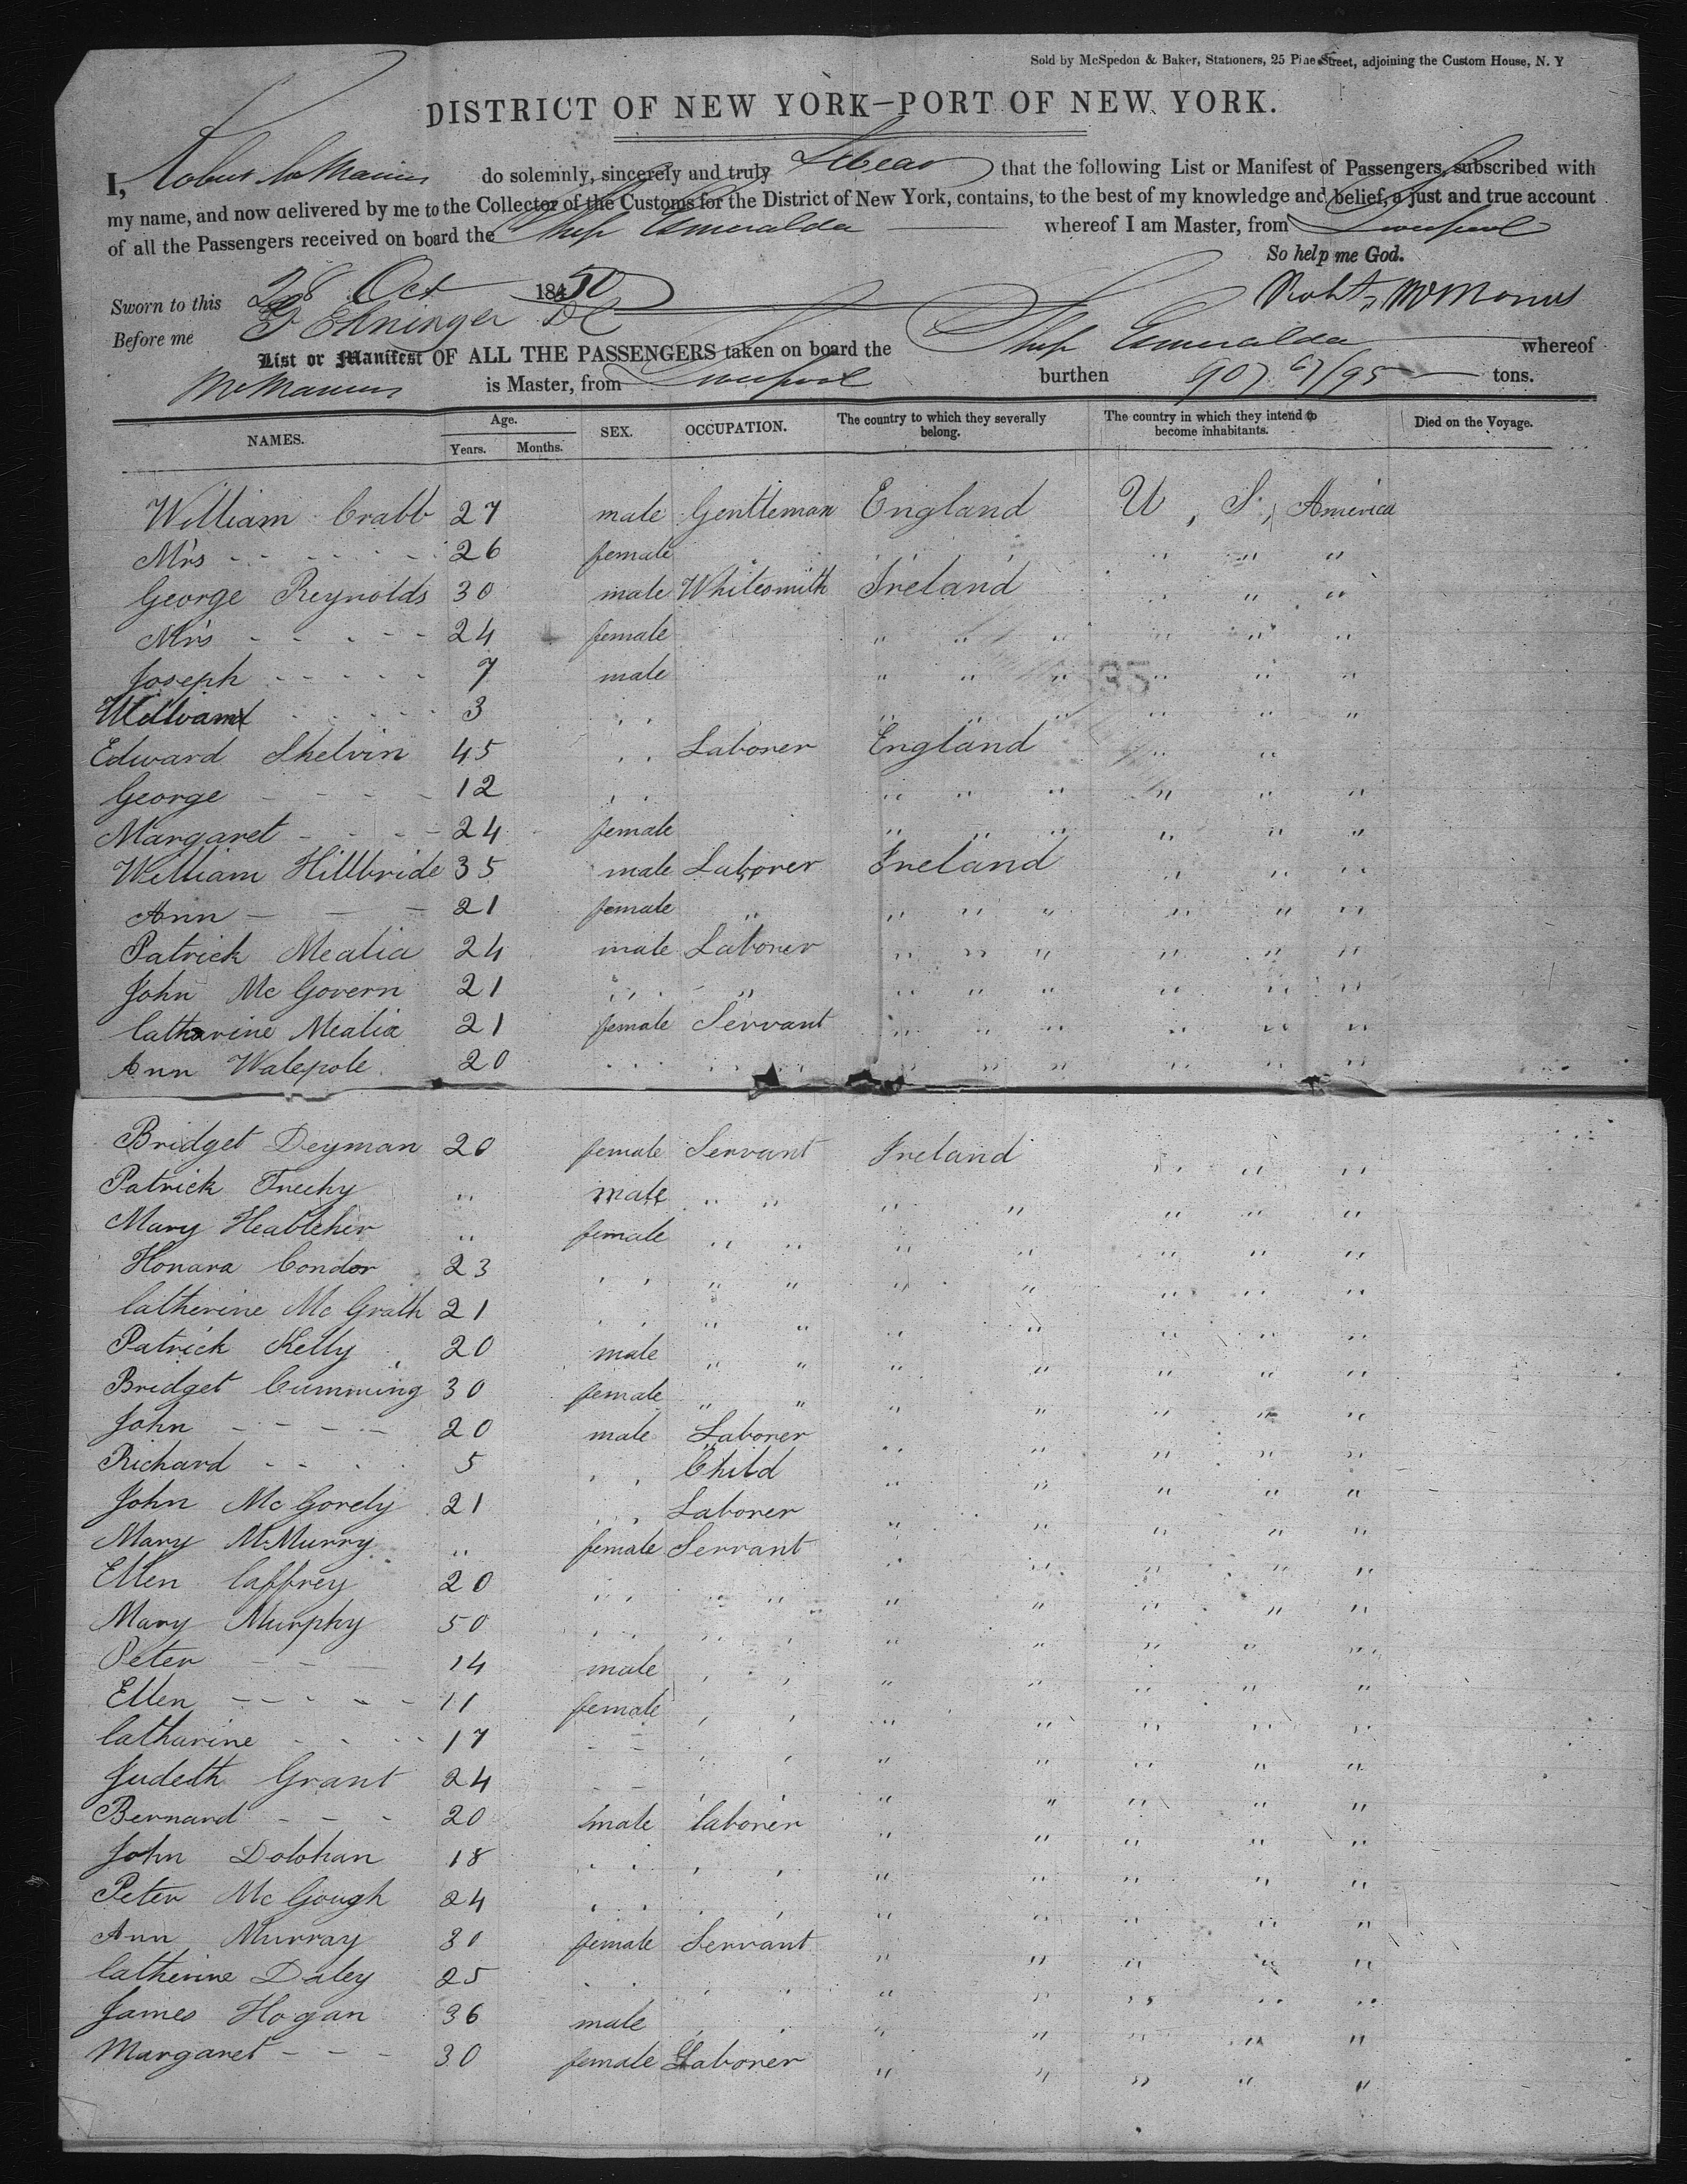 Sold by McSpedon & Baker, Stationers, 25 Pine Street, adjoining the Custom House, N. Y
DISTRICT OF NEW YORK—PORT OF NEW YORK.
I, Robert McManus do solemnly, sincerely and truly Swear that the following List or Manifest of Passengers, subscribed with
my name, and now delivered by me to the Collector of the Customs for the District of New York, contains, to the best of my knowledge and belief, a just and true account
of all the Passengers received on board the Ship Esmeralda whereof I am Master, from Liverpool
So help me God.
Sworn to this 28 Oct 1850 Robt. McManus
Before me Ehninger
List or Manifest OF ALL THE PASSENGERS taken on board the Ship Esmeralda whereof
McManus is Master, from Liverpool burthen 907 /95 tons.
NAMES. Age. Years. Months. SEX. OCCUPATION. The country to which they severally belong. The country in which they intend to become inhabitants. Died on the Voyage.
William Crabb 27 male Gentleman England U, S, America
Mrs - - - - 26 female " " "
George Reynolds 30 male Whitesmith Ireland " " "
Mrs - - - - - 24 female " " " " " "
Joseph - - - - - 7 male " " " " " "
William - - - - 3 " " " " " " " "
Edward Shelvin 45 " " Laborer England " "
George - - - - 12 " " " " " " " "
Margaret - - - - 24 female " " " " " "
William Hillbride 35 male Laborer Ireland " " "
Ann - - - 21 female " " " " " " "
Patrick Mealia 24 male Laborer " " " " " "
John McGovern 21 " " " " " " " " "
Catharine Mealia 21 female Servant " " " " " "
Ann Walepole 20 " " " " " " " " " "
Bridget Deyman 20 female Servant Ireland " " "
Patrick Trechy " male " " " " " " "
Mary Heableher " female " " " " " " "
Honara Condor 23 " " " " " " " " "
Catherine McGrath 21 " " " " " " " " "
Patrick Kelly 20 male " " " " " " "
Bridget Cumming 30 female " " " " " " "
John - - - - 20 male Laborer " " " " "
Richard - - - - 5 " " Child " " " " "
John McGorely 21 " " Laborer " " " " "
Mary McMurry " female Servant " " " " "
Ellen Caffrey 20 " " " " " " " " "
Mary Murphy 50 " " " " " " " " "
Peter - - - 14 male " " " " " " "
Ellen - - - - - 11 female " " " " " " "
Catharine - - - - 17 - - " " " " " " "
Judeth Grant 24 - - " " " " " " "
Bernard - - - 20 male laborer " " " " "
John Dolohan 18 " " " " " " " " "
Peter McGough 24 " " " " " " " " "
Ann Murray 30 female Servant " " " " "
Catherine Daley 25 " " " " " " " " "
James Hogan 36 male " " " " " " "
Margaret - - - 30 female Laborer " " " " "